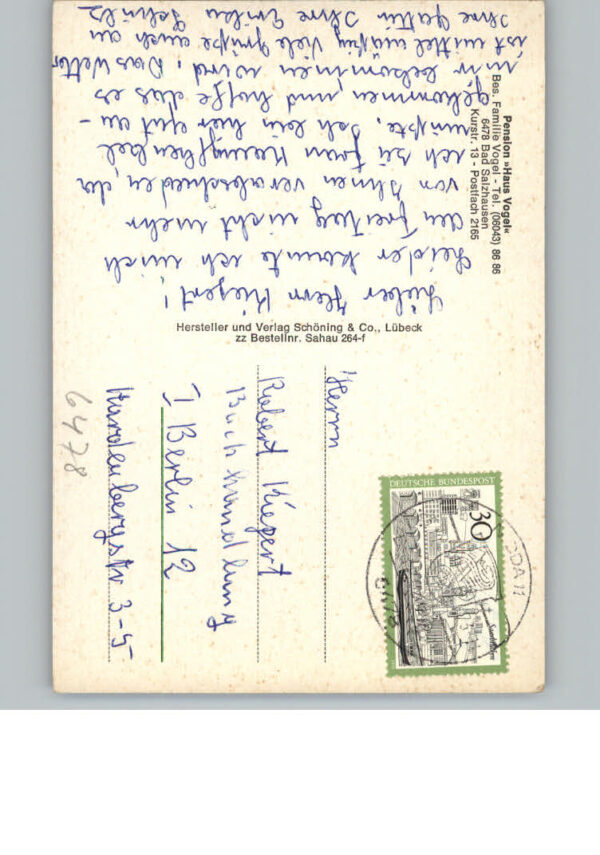 Pension »Haus Vogel«
Bes. Familie Vogel - Tel. (06043) 86 86
6478 Bad Salzhausen
Kurstr. 13 - Postfach 2165
Lieber Herr Kiepert!
Leider konnte ich mich
am Freitag nicht mehr
von Ihnen verabschieden, da
ich zu Frau
mußte. Ich bin hier gut an-
gekommen und hoffe das es
mir bekommen wird. Das Wetter
ist mittelmäßig Viele Grüße auch an
Ihre Gattin Ihre Emilia Schulz
Hersteller und Verlag Schöning & Co., Lübeck
zz Bestellnr. Sahau 264-f
DEUTSCHE BUNDESPOST
30
Herrn
Robert Kiepert
Buchhandlung
I Berlin 12
Hardenbergstr 3-5
6478